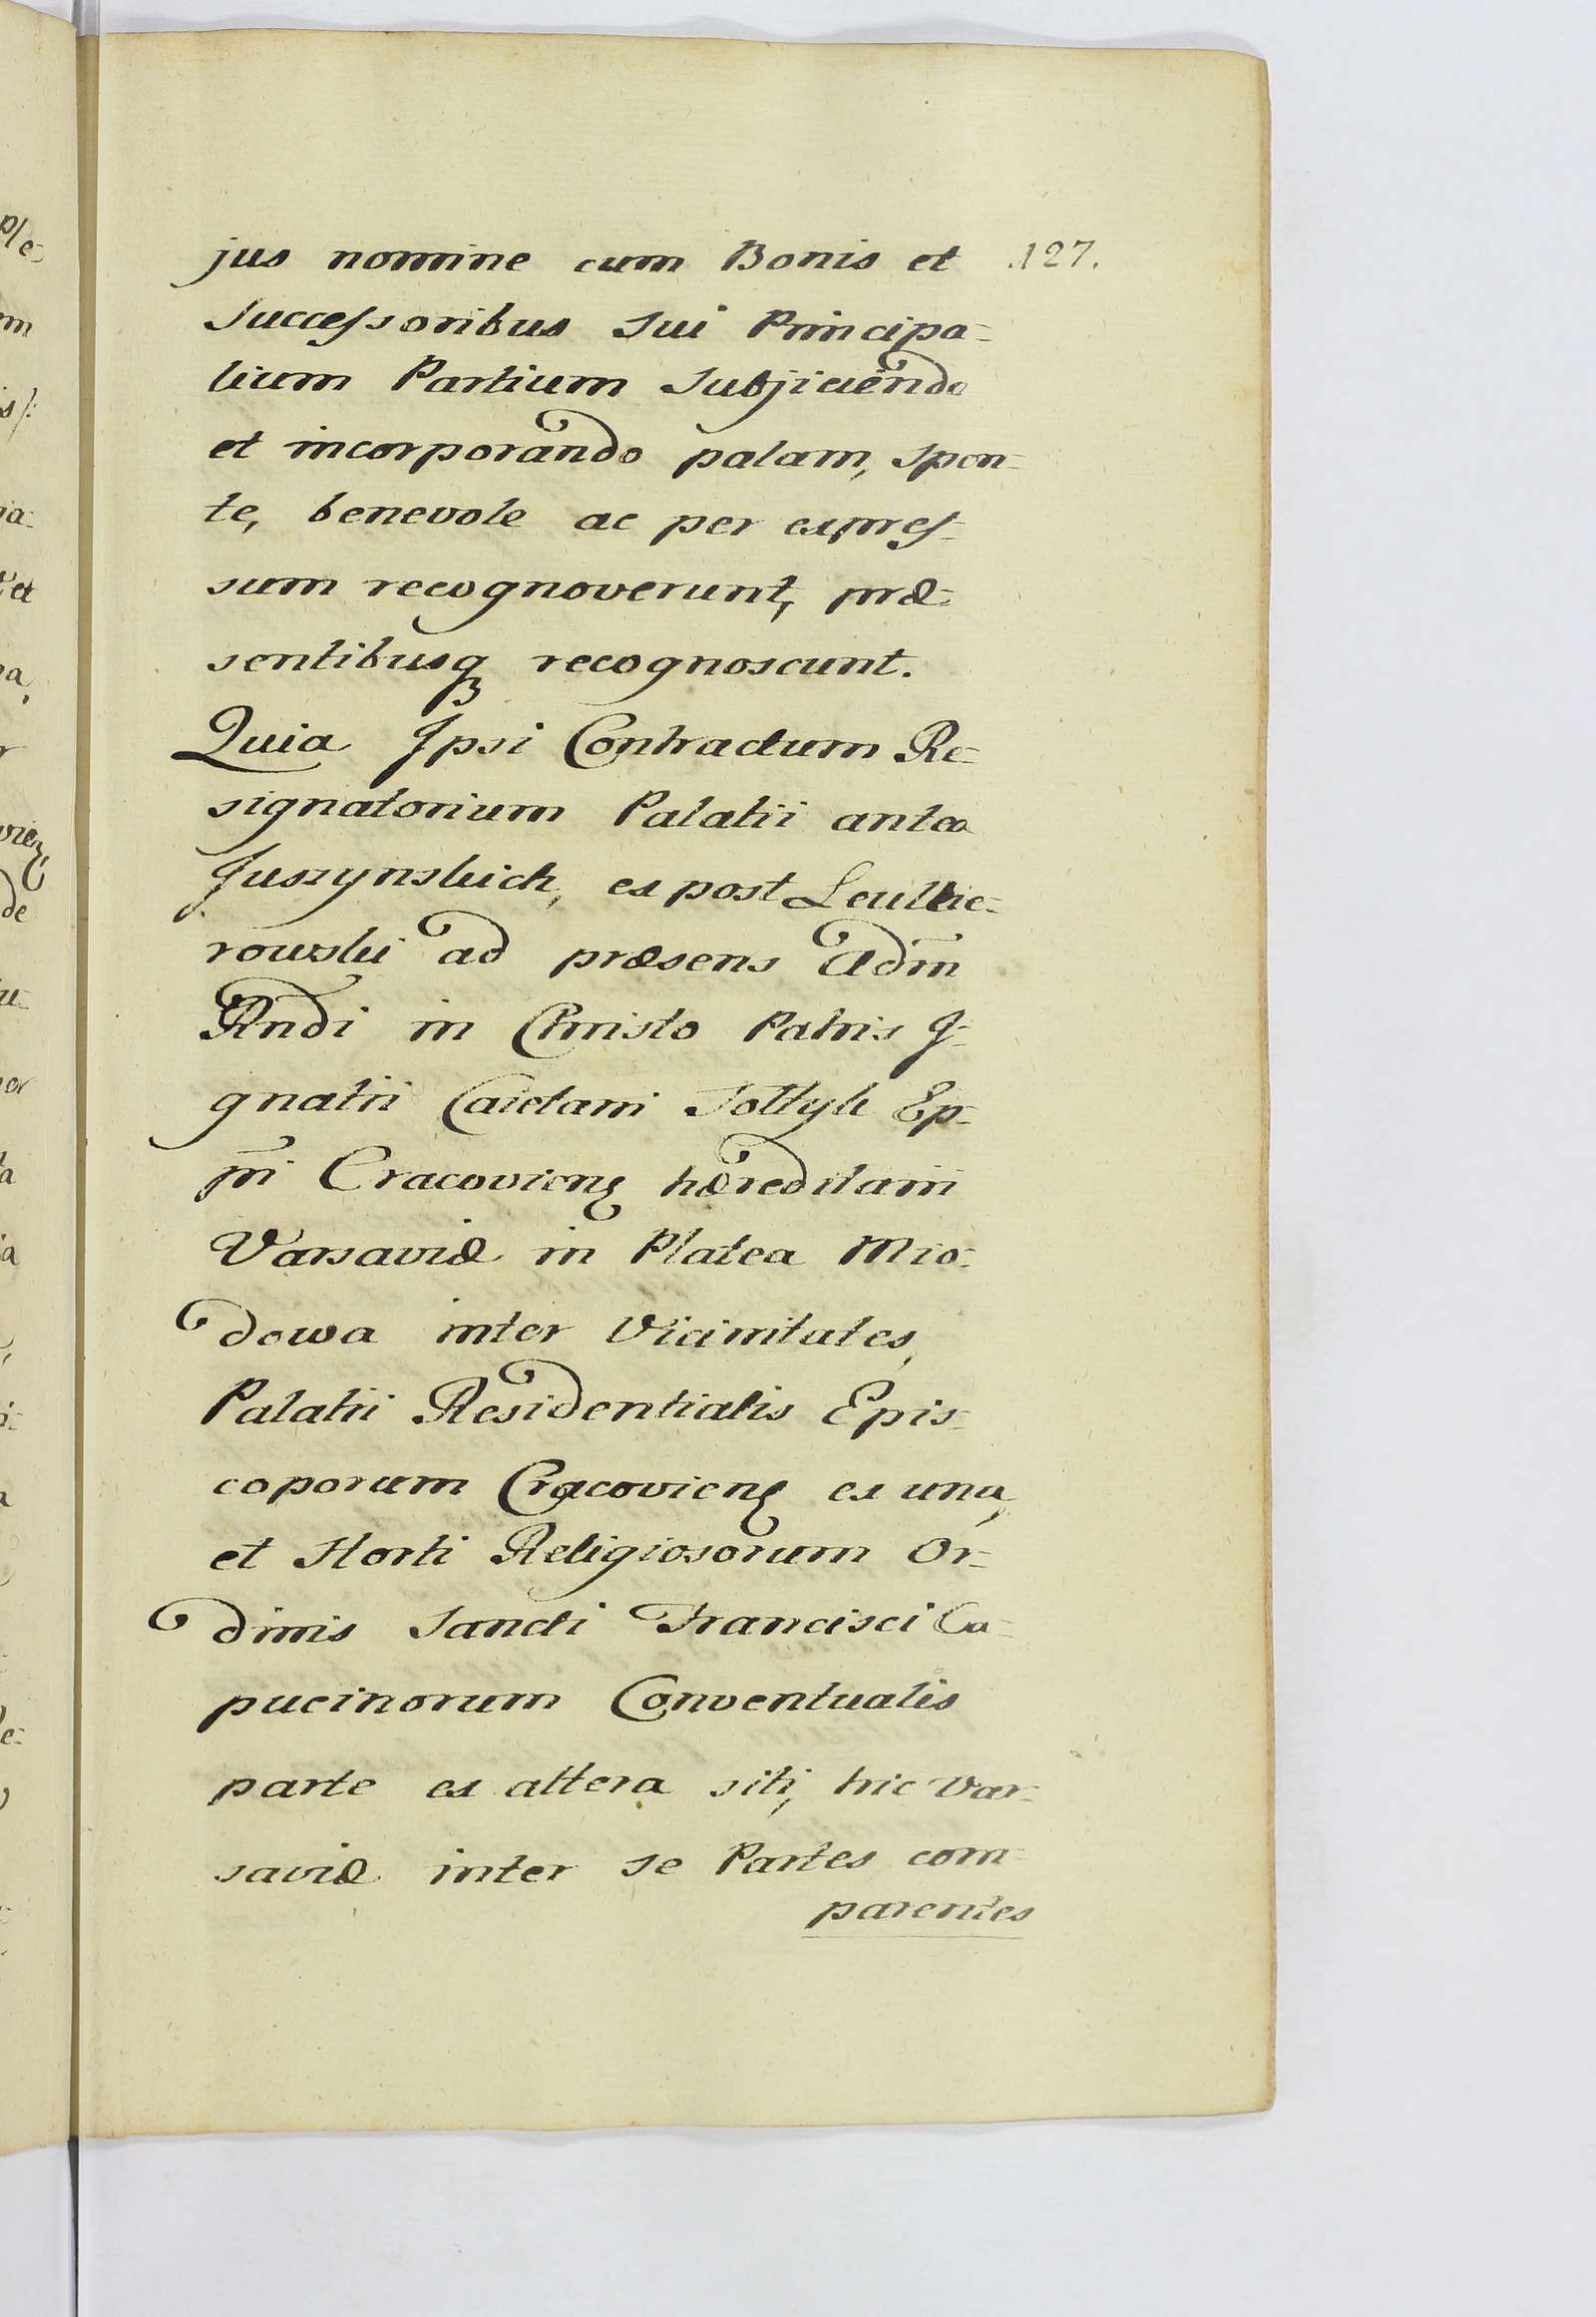 127.
jus nomine cum Bonis et
Successoribus Sui Principa-
lium Partium Subjiciendo
et incorporando palam, spon-
te, benevole ac per expres-
sum recognoverunt, præ-
sentibusq recognoscunt.
Quia Ipsi Contractum Re-
signatorium Palatii antea
Juszynskich, ex post
rowski ad præsens Adm̄
Rndi in Christo Patris I-
gnatii Caietani Sołtyk Ep-
pi Cracovieng hæreditarii
Varsaviæ in Platea Mio-
dowa inter Vicinitates,
Palatii Residentialis Epis-
coporum Cracovieng ex una,
et Horti Religiosorum Or-
dinis Sancti Francisci Ca-
pucinorum Conventualis
parte ex altera siti, hic Var-
saviæ inter se Partes com-
parentes